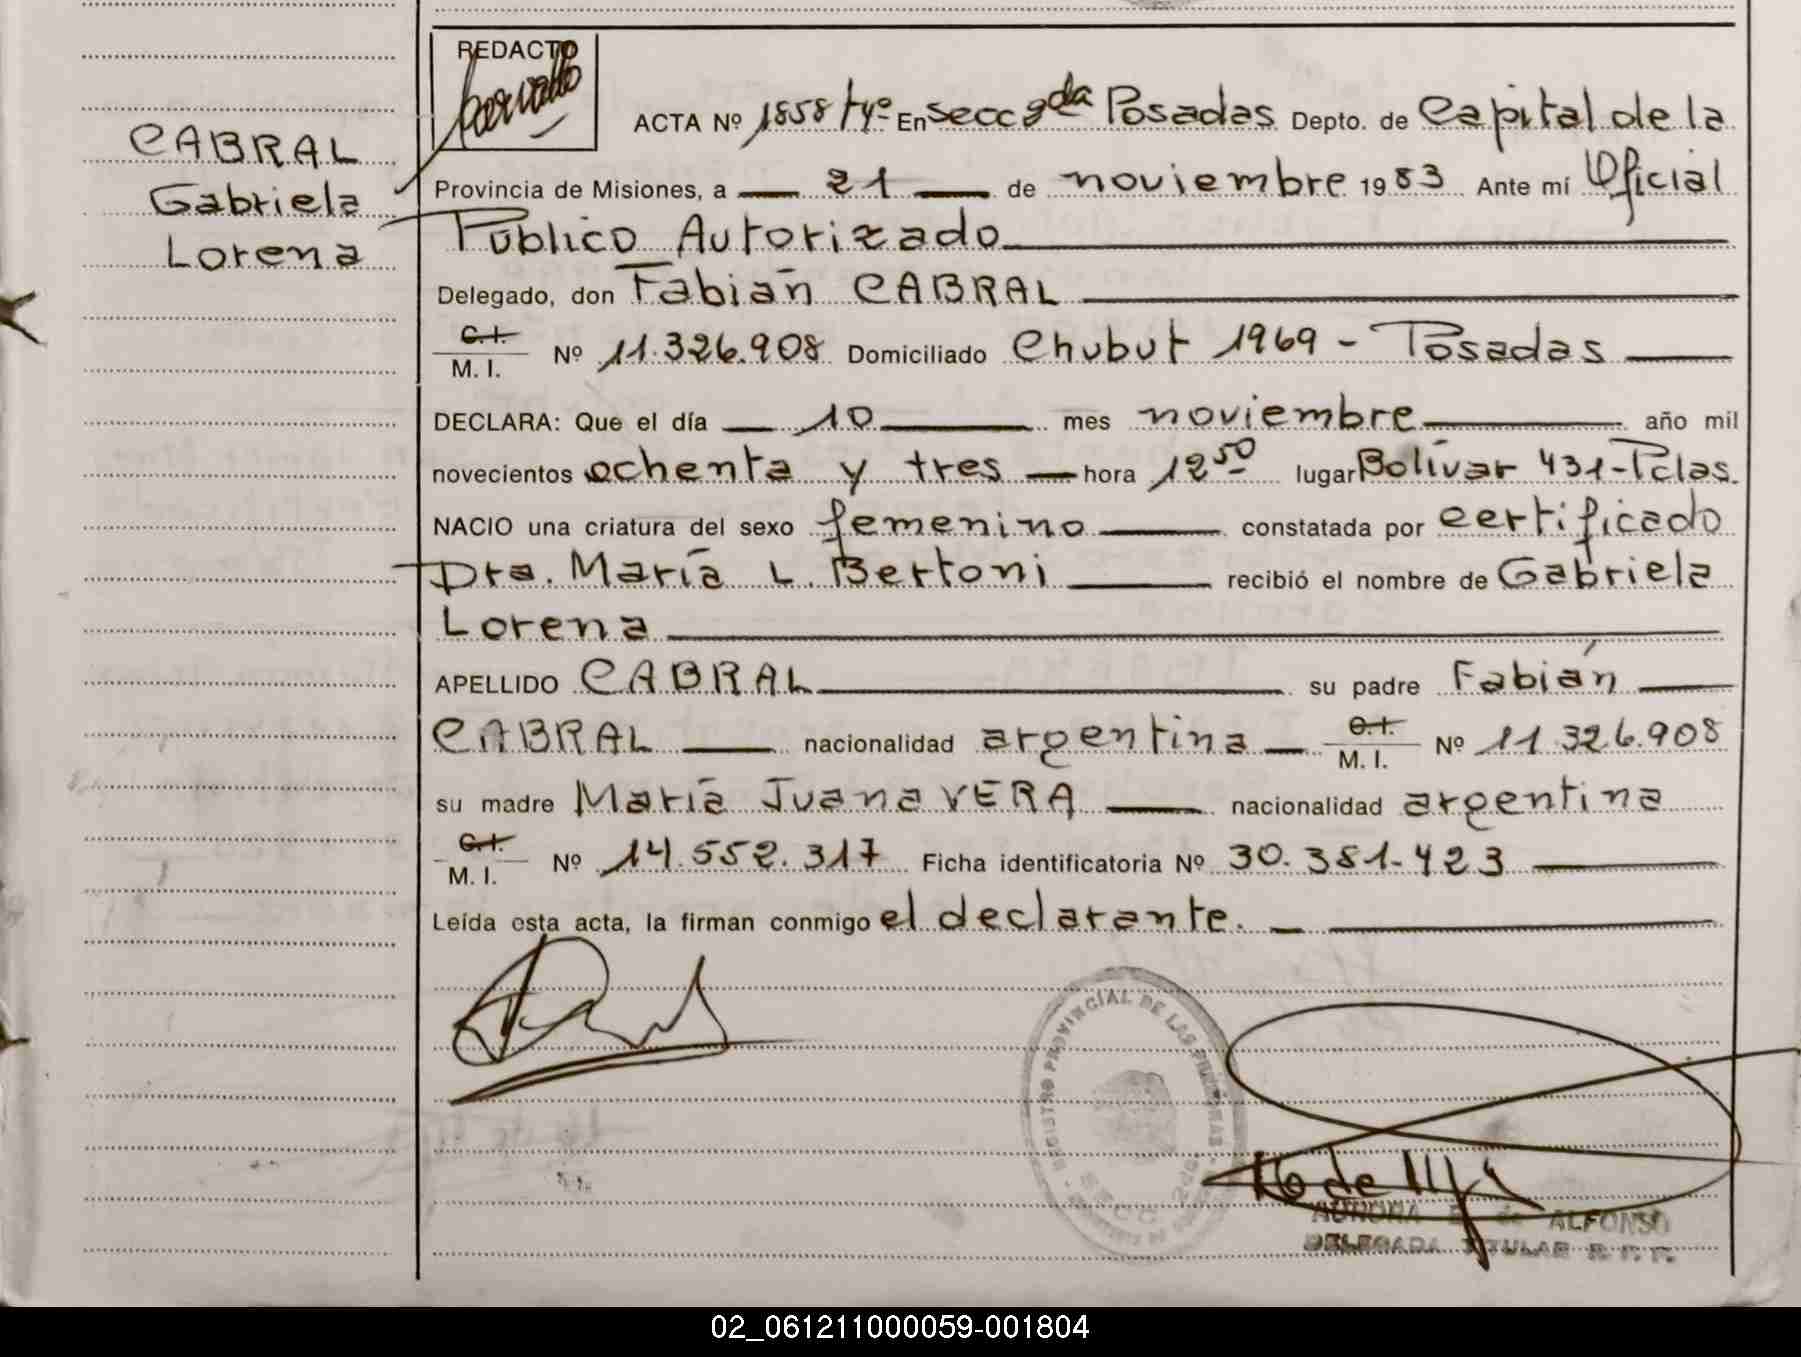 REDACTO
CABRAL
Gabriela
Lorena
ACTA Nº 1858 Tº En secc 2da Posadas Depto. de Capital de la
Provincia de Misiones, a 21 de noviembre 1983 Ante mí Oficial
Público Autorizado
Delegado, don Fabián CABRAL
C.I. M. I. Nº 11.326.908 Domiciliado Chubut 1969 - Posadas
DECLARA: Que el día 10 mes noviembre año mil
novecientos ochenta y tres hora 12 50 lugar Bolívar 431-Pdas.
NACIO una criatura del sexo femenino constatada por certificado
Dra. María L. Bertoni recibió el nombre de Gabriela
Lorena
APELLIDO CABRAL su padre Fabián
CABRAL nacionalidad argentina C.I. M. I. Nº 11.326.908
su madre María Juana VERA nacionalidad argentina
C.I. M. I. Nº 14.552.317 Ficha identificatoria Nº 30.381.423
Leída esta acta, la firman conmigo el declarante.
REGISTRO PROVINCIAL DE LAS PERSONAS
SECC. 2da.
AURORA de ALFONSO
DELEGADA TITULAR R. P. P.
02_061211000059-001804